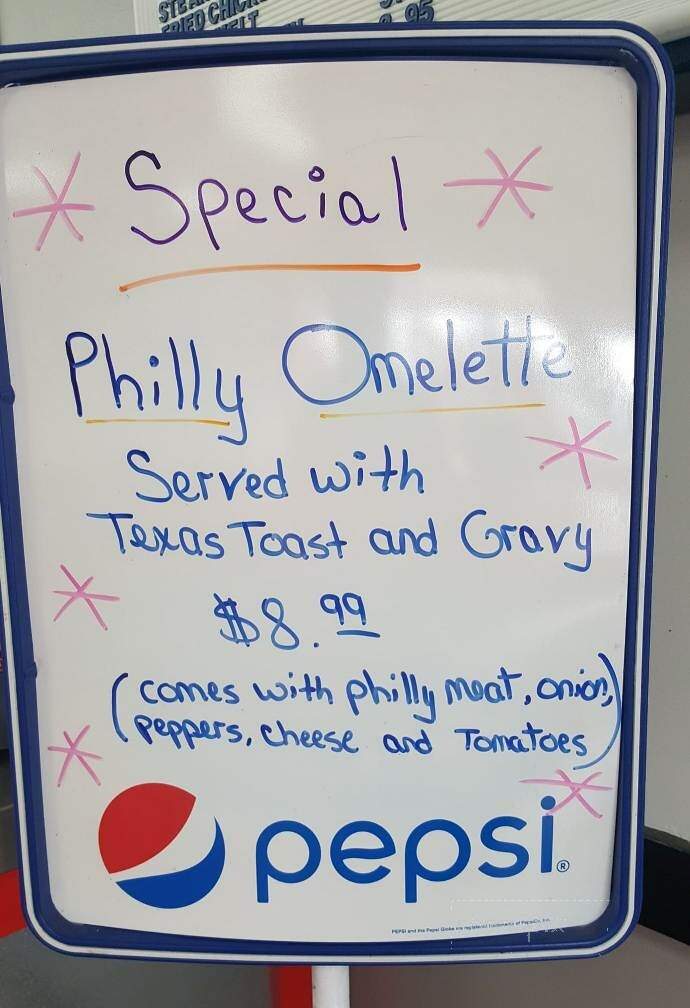 FRIED CHICK
.95
Special
Philly Omelette
Served with
Texas Toast and Gravy
$8.99
(comes with philly meat, onion,
peppers, cheese and Tomatoes)
pepsi®
PEPSI and the Pepsi Globe are registered trademarks of PepsiCo, Inc.